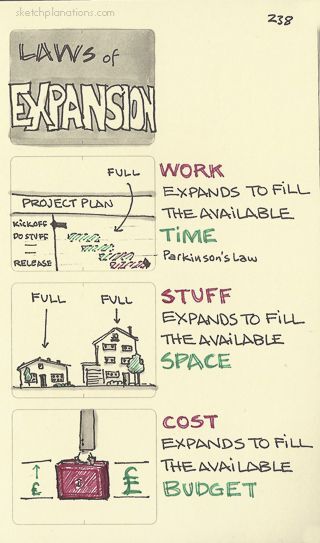 sketchplanations.com
238
LAWS of
EXPANSION
FULL
PROJECT PLAN
KICKOFF
DO STUFF
RELEASE
WORK
EXPANDS TO FILL
THE AVAILABLE
TIME
Parkinson's Law
FULL FULL
STUFF
EXPANDS TO FILL
THE AVAILABLE
SPACE
£ £
COST
EXPANDS TO FILL
THE AVAILABLE
BUDGET